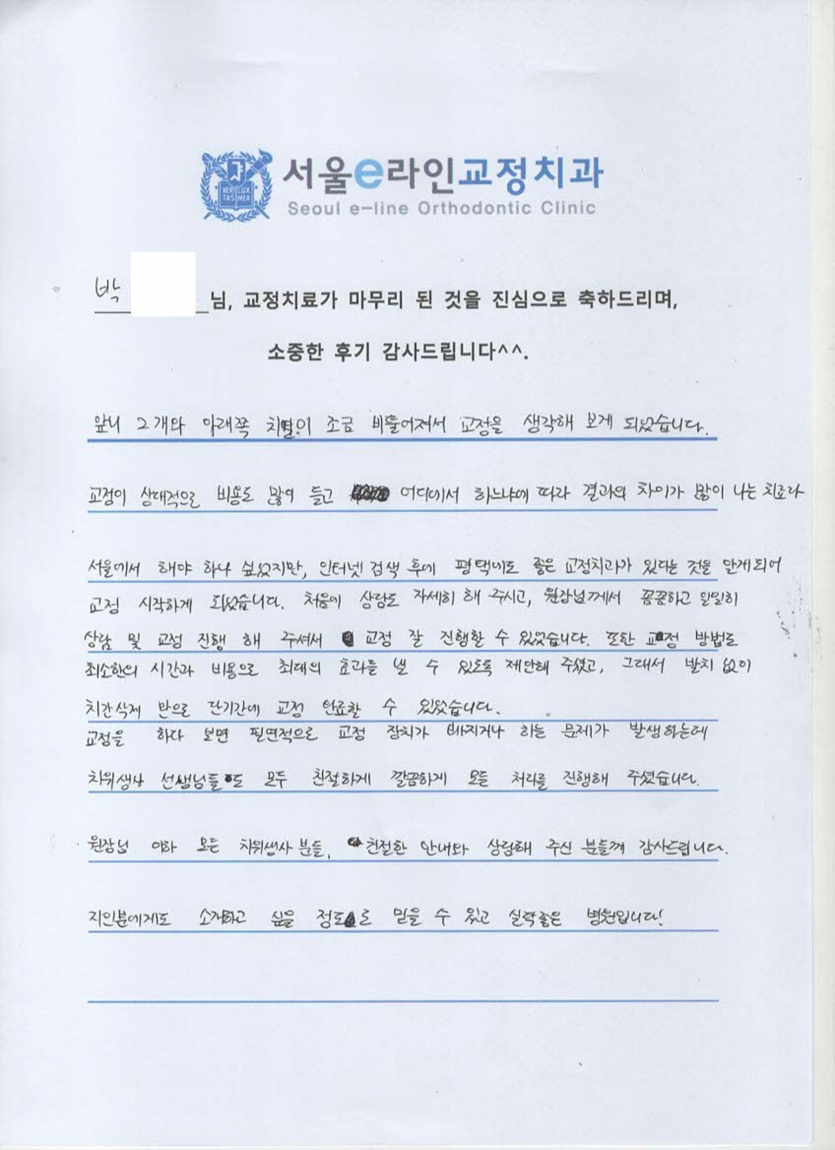 VERI LUX TAS MEA
서울e라인교정치과
Seoul e-line Orthodontic Clinic
박 님, 교정치료가 마무리 된 것을 진심으로 축하드리며,
소중한 후기 감사드립니다^^.
앞니 2개와 아래쪽 치열이 조금 비뚤어져서 교정을 생각해 보게 되었습니다.
교정이 상대적으로 비용도 많이 들고 어디에서 하느냐에 따라 결과의 차이가 많이 나는 치료라
서울에서 해야 하나 싶었지만, 인터넷 검색 후에 평택에도 좋은 교정치과가 있다는 것을 알게되어
교정 시작하게 되었습니다. 처음에 상담도 자세히 해 주시고, 원장님께서 꼼꼼하고 면밀히
상담 및 교정 진행 해 주셔서 교정 잘 진행할 수 있었습니다. 또한 교정 방법도
최소한의 시간과 비용으로 최대의 효과를 낼 수 있도록 제안해 주셨고, 그래서 발치 없이
치간삭제 만으로 단기간에 교정 완료할 수 있었습니다.
교정을 하다 보면 필연적으로 교정 장치가 빠지거나 하는 문제가 발생하는데
치위생사 선생님들도 모두 친절하게 깔끔하게 모든 처리를 진행해 주셨습니다.
원장님 이하 모든 치위생사 분들, 친절한 안내와 상담해 주신 분들께 감사드립니다.
지인분에게도 소개하고 싶을 정도로 믿을 수 있고 실력좋은 병원입니다!